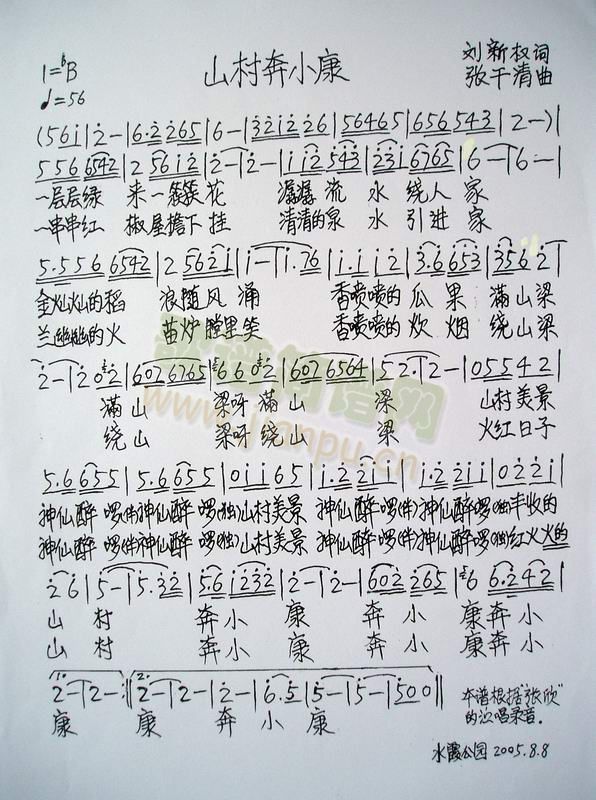 山村奔小康
1=♭B
♩=56
刘新权词
张千清曲
(561̇|2̇-|6.2̇2̇65|6-|3̇2̇1̇2̇2̇6|56465|656543|2-)|
5566542|2561̇2̇|2̇-|2̇-|1̇1̇2̇543|2̇31̇6765|6-|6-|
一层层绿 来一簇簇花 潺潺流水绕人家
一串串红 椒屋檐下挂 清清的泉水引进家
5.5566542|2562̇1̇|1̇-|1̇.76|1̇.1̇1̇2̇|3.6653|3562̇|
金灿灿的稻 浪随风涌 香喷喷的瓜果 满山梁
兰幽幽的火 苗炉膛里笑 香喷喷的炊烟 绕山梁
2̇-|2̇02̇|6026765|6602̇|6026564|52.|2-|05542|
满山 梁呀满山 梁 山村美景
绕山 梁呀绕山 梁 火红日子
5.6655|5.6655|01̇1̇65|1̇.2̇2̇1̇1̇|1̇.2̇2̇1̇1̇|02̇2̇1̇|
神仙醉啰(伴)神仙醉啰(独)山村美景 神仙醉啰(伴)神仙醉啰(独)丰收的
神仙醉啰(伴)神仙醉啰(独)山村美景 神仙醉啰(伴)神仙醉啰(独)红火火的
2̇6|5-|5.3̇2̇|5.61̇2̇3̇2̇|2̇-|2̇-|6022̇65|66.2̇42|
山村 奔小康 奔小康奔小
山村 奔小康 奔小康奔小
1. 2-|2-:‖2. 2-|2-|2̇-|6.5|5-|5-|500‖
康 康 奔小康
本谱根据"张欣"
的演唱录音.
水霞公园 2005.8.8
歌谱简谱网
www.jianpu.cn